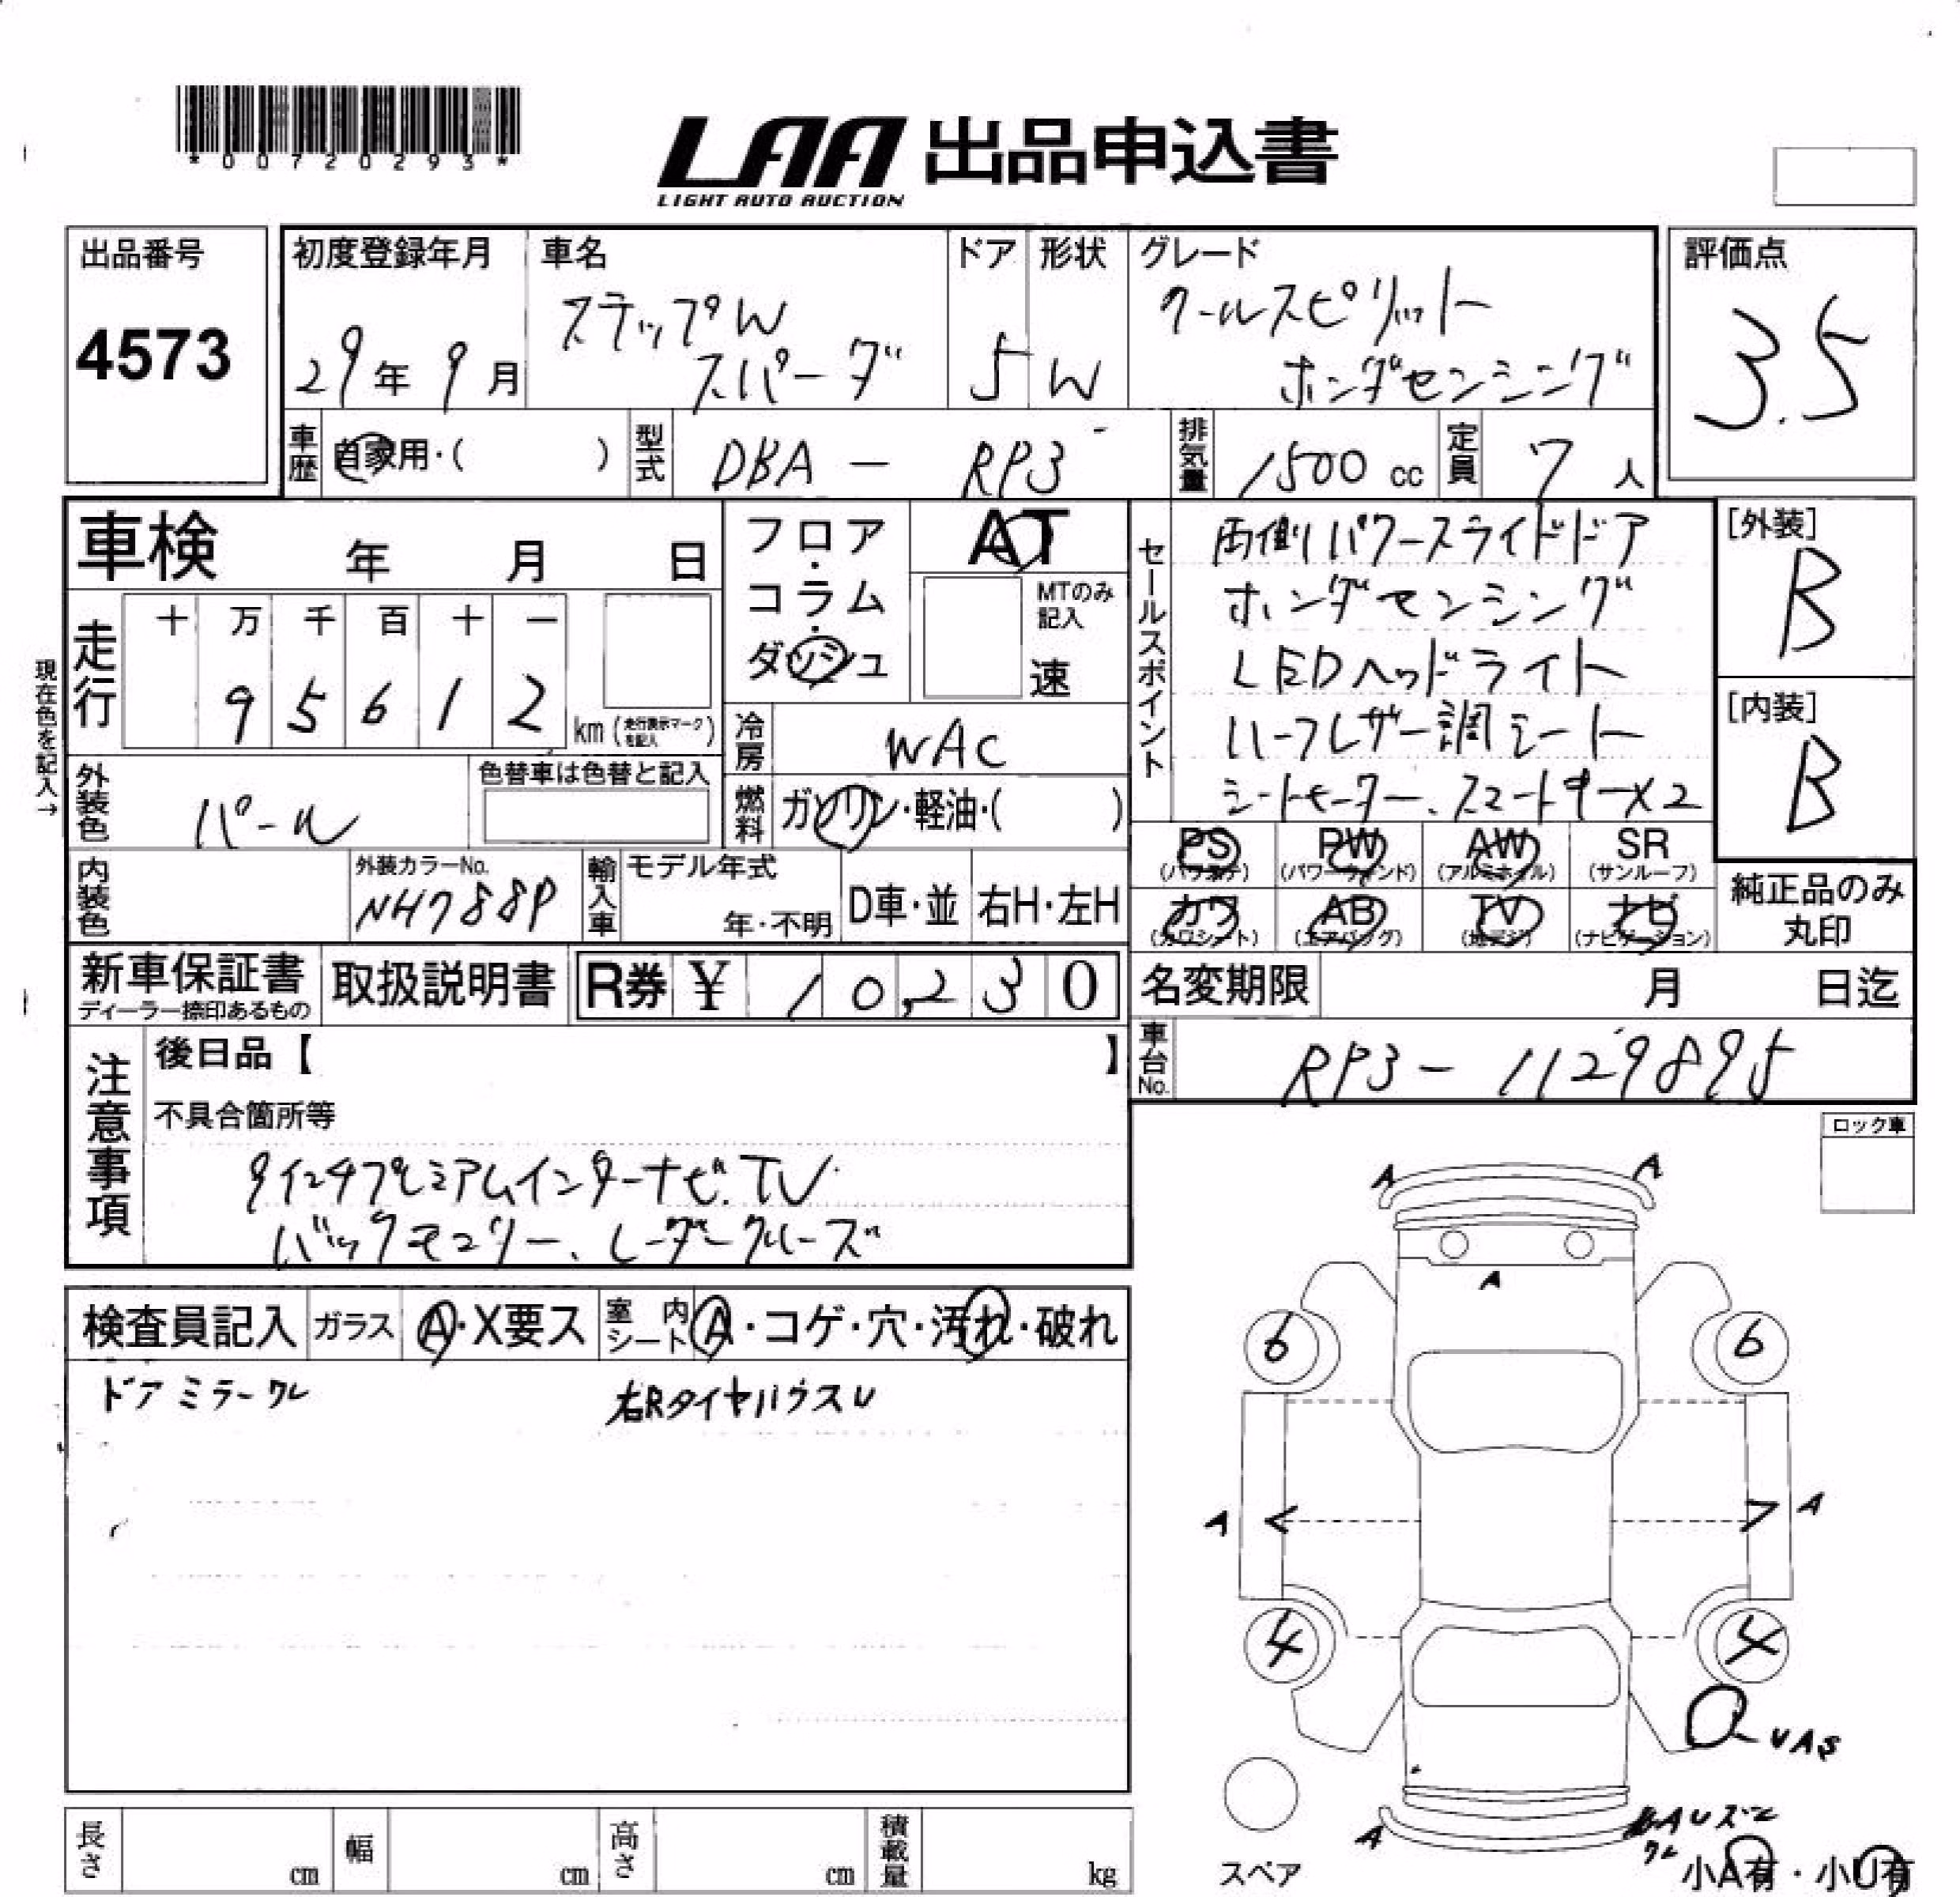 *00720293*
LAA 出品申込書
LIGHT AUTO AUCTION
出品番号
4573
初度登録年月
29年 9月
車名
ステップW
スパーダ
ドア
5
形状
W
グレード
クールスピリット
ホンダセンシング
評価点
3.5
車歴 自家用・( )
型式 DBA - RP3
排気量 1500 cc
定員 7 人
車検 年 月 日
フロア・コラム・ダッシュ
AT
MTのみ記入
速
セールスポイント
両側パワースライドドア
ホンダセンシング
LEDヘッドライト
ハーフレザー調シート
シートヒーター、スマートキー×2
[外装]
B
[内装]
B
現在色を記入→
走行
十 万 千 百 十 一
9 5 6 1 2
km (走行表示マークを記入)
冷房 WAC
燃料 ガソリン・軽油・( )
外装色 パール
色替車は色替と記入
内装色
外装カラーNo.
NH788P
輸入車
モデル年式
年・不明
D車・並
右H・左H
PS (パワステ)
PW (パワーウィンド)
AW (アルミホイル)
SR (サンルーフ)
カワ (カワシート)
AB (エアバッグ)
TV (地デジ)
ナビ (ナビゲーション)
純正品のみ
丸印
新車保証書
ディーラー捺印あるもの
取扱説明書
R券 ¥ 10,230
名変期限 月 日迄
車台No. RP3 - 1129895
注意事項
後日品【 】
不具合箇所等
9インチプレミアムインターナビ.TV
バックモニター、レーダークルーズ
ロック車
検査員記入
ガラス A・X要ス
室内シート A・コゲ・穴・汚れ・破れ
ドアミラーワレ
右RタイヤハウスU
A A
A
6 6
A A
4 4
UAS
A
ワレ
スペア
小A有・小U有
長さ cm
幅 cm
高さ cm
積載量 kg